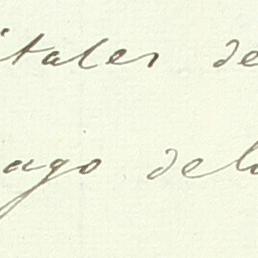 itales de
ago delo